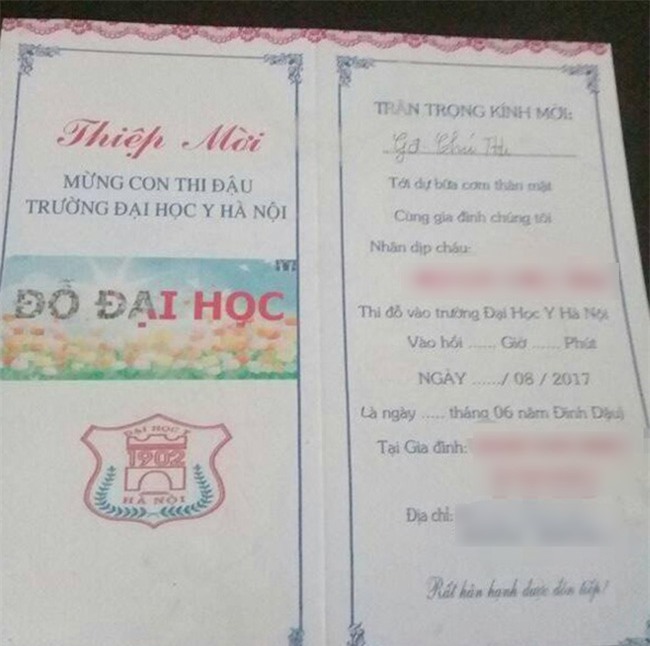 Thiệp Mời
MỪNG CON THI ĐẬU
TRƯỜNG ĐẠI HỌC Y HÀ NỘI
ĐỖ ĐẠI HỌC
ĐẠI HỌC Y
1902
HÀ NỘI
TRÂN TRỌNG KÍNH MỜI:
Chú
Tới dự bữa cơm thân mật
Cùng gia đình chúng tôi
Nhân dịp cháu:
Thi đỗ vào trường Đại Học Y Hà Nội
Vào hồi ...... Giờ ...... Phút
NGÀY ....../ 08 / 2017
Là ngày ..... tháng 06 năm Đinh Dậu)
Tại Gia đình:
Địa chỉ:
Rất hân hạnh được đón tiếp!